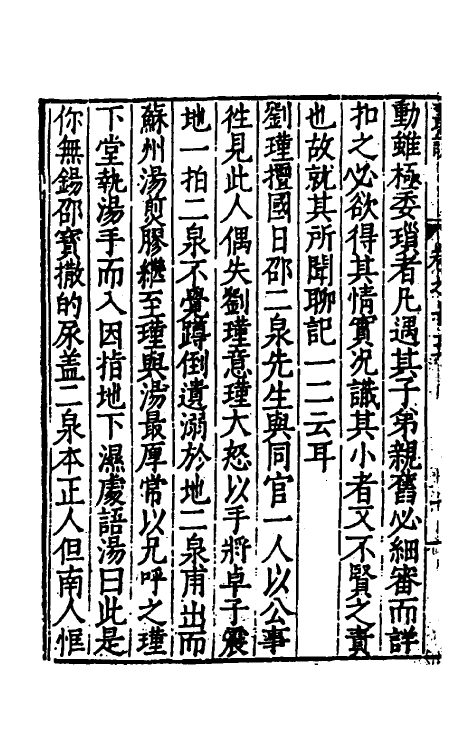 動雖極委瑣者凡遇其子弟親舊必細審而詳
扣之必欲得其情實况識其小者又不賢之責
也故就其所聞聊記一二云耳
劉瑾擅國日邵二泉先生與同官一人以公事
徃見此人偶失劉瑾意瑾大怒以手將卓子震
地一拍二泉不覺蹲倒遺溺於地二泉甫出而
蘇州湯煎膠繼至瑾與湯最厚常以兄呼之瑾
下堂執湯手而入因指地下濕處語湯曰此是
你無錫邵寶撒的尿盖二泉本正人但南人恇